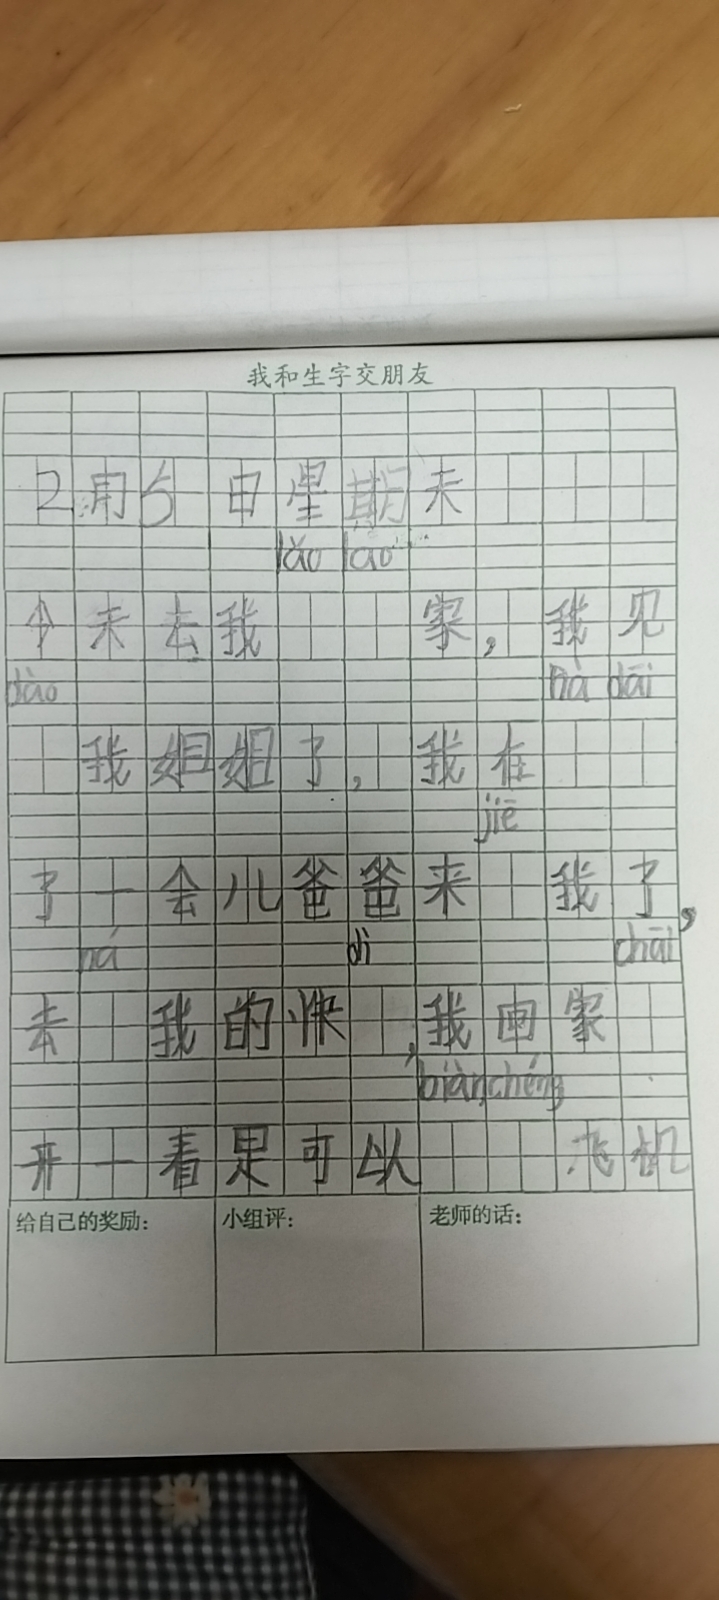 我和生字交朋友
2月5日星期天
lǎo lao
今天去我家,我见
dào nà dāi
我姐姐了,我在
jiē
了一会儿爸爸来我了,
ná dì chāi
去我的快,我回家
biànchéng
开一看是可以飞机
给自己的奖励: 小组评: 老师的话: